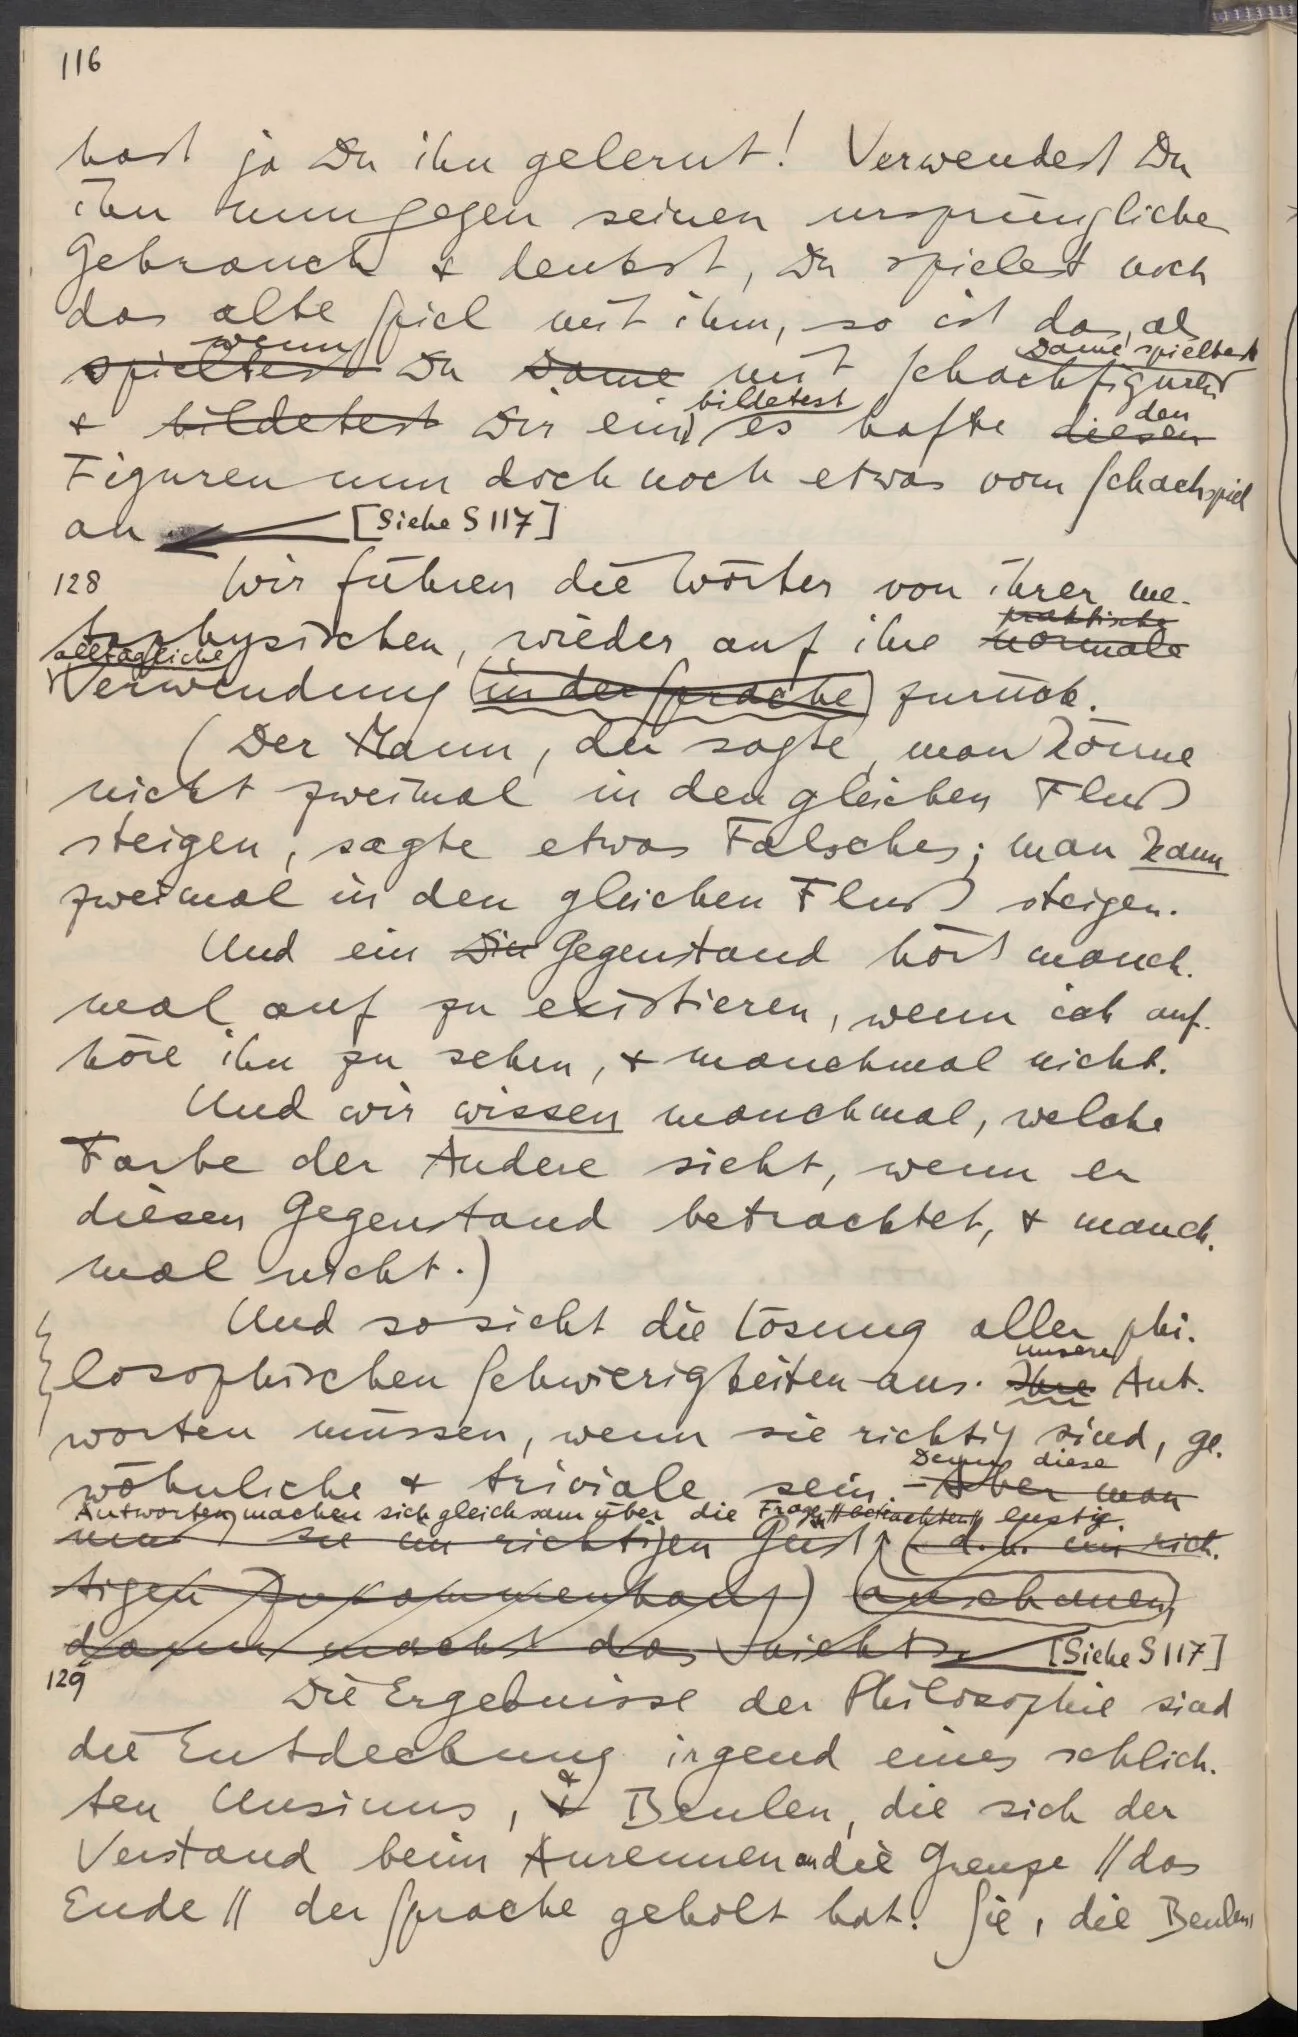 116
hast ja Du ihn gelernt! Verwendest Du
ihn nun gegen seinen ursprüngliche
Gebrauch & denkst, Du spielest noch
das alte Spiel mit ihm, so ist das, als
wenn Dame spieltest
spieltest Du Dame mit Schachfiguren
bildetest den
& bildetest Dir ein, es hafte diesen
Figuren nun doch noch etwas vom Schachspiel
an [Siehe S 117]
128 Wir führen die Wörter von ihrer me-
praktische
taphysischen, wieder auf ihre normale
alltägliche
Verwendung (in der Sprache) zurück.
(Der Mann, der sagte, man könne
nicht zweimal in den gleichen Fluß
steigen, sagte etwas Falsches; man kann
zweimal in den gleichen Fluß steigen.
Und ein Din Gegenstand hört manch-
mal auf zu existieren, wenn ich auf-
höre ihn zu sehen, & manchmal nicht.
Und wir wissen manchmal, welche
Farbe der Andere sieht, wenn er
diesen Gegenstand betrachtet, & manch-
mal nicht.)
Und so sieht die Lösung aller phi-
unsere
losophischen Schwierigkeiten aus. Ihre Ant-
worten müssen, wenn sie richtig sind, ge-
Denn diese
wöhnliche & triviale sein. – Aber man
Antworten machen sich gleichsam über die Frage // betrachten // lustig.
muß sie im richtigen Geist (d.h. im rich-
tigen Zusammenhang) anschauen,
dann macht das nichts. [Siehe S 117]
129 Die Ergebnisse der Philosophie sind
die Entdeckung irgend eines schlich-
&
ten Unsinns, & Beulen, die sich der
Verstand beim Anrennen an die Grenze // das
Ende // der Sprache geholt hat. Sie, die Beulen,